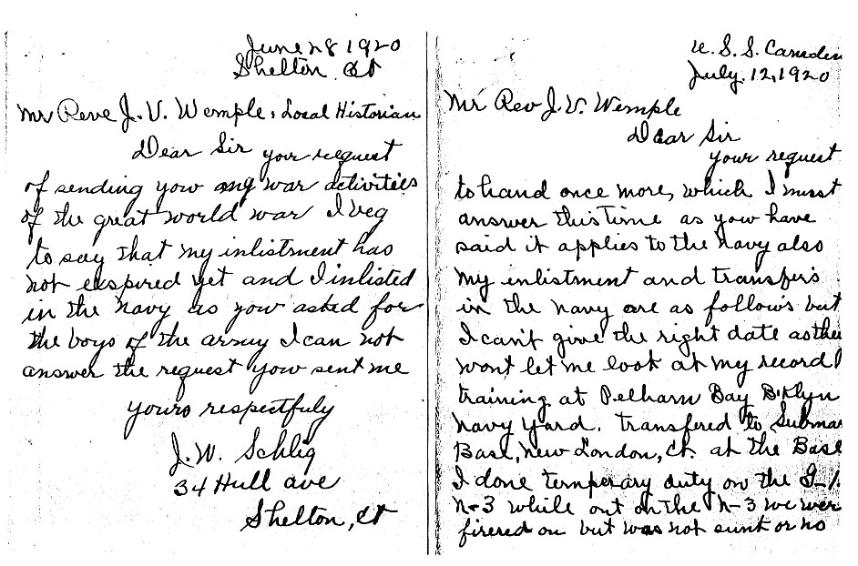 June 28 1920
Shelton Ct
Mr Reve J. V. Wemple, Local Historian
Dear Sir your request
of sending you my war activities
of the great world war I beg
to say that my inlistment has
not expired yet and I inlisted
in the navy as you asked for
the boys of the army I can not
answer the request you sent me
yours respectfuly
J. W. Schlig
34 Hull ave
Shelton, ct
U. S. S. Camden
July. 12, 1920
Mr Rev J. V. Wemple
Dear Sir
your request
to hand once more, which I must
answer this time as you have
said it applies to the navy also
my enlistment and transfers
in the navy are as follows but
I can't give the right date as they
wont let me look at my record
training at Pelham Bay B'klyn
navy yard. transfered to Submar
Base, New London, Ct. at the Base
I done temperary duty on the
N-3 while out on the N-3 we wer
firered on but was not sunk or no